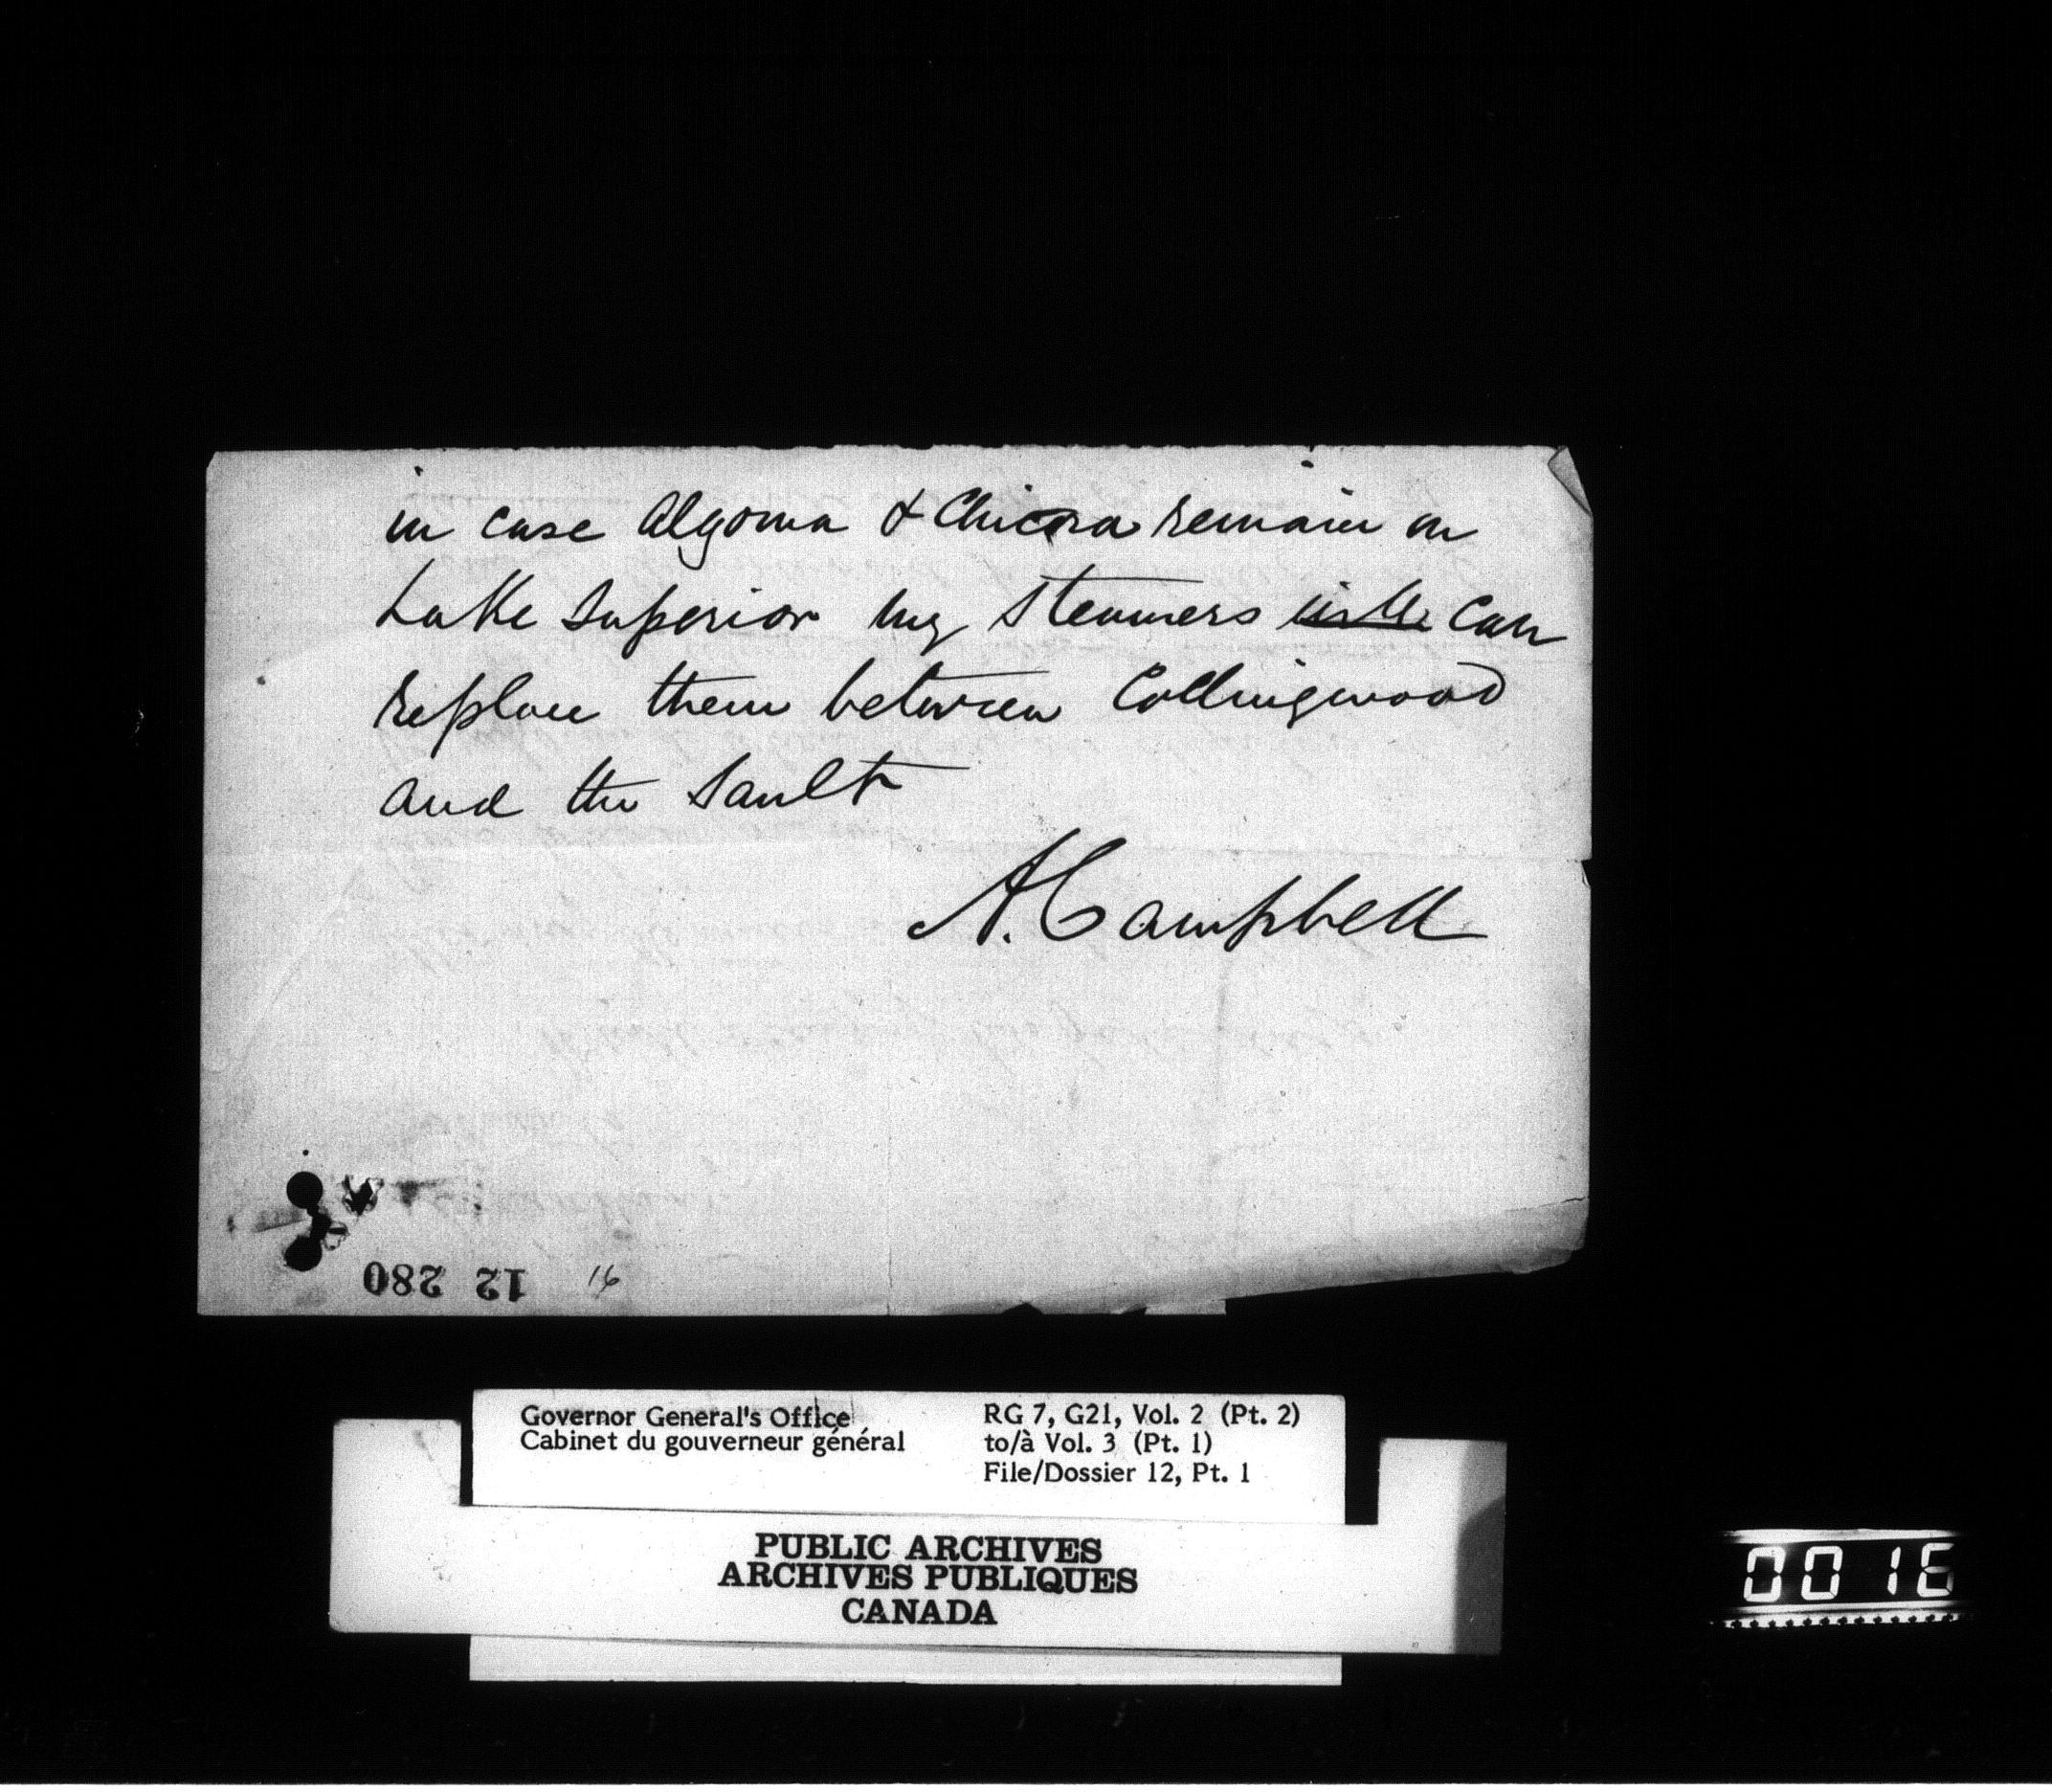 in case Algoma & Chicora remain on
Lake Superior my steamers will can
replace them between Collingwood
and the Sault
A. Campbell
12 280 16
Governor General's Office
Cabinet du gouverneur général
RG 7, G21, Vol. 2 (Pt. 2)
to/à Vol. 3 (Pt. 1)
File/Dossier 12, Pt. 1
PUBLIC ARCHIVES
ARCHIVES PUBLIQUES
CANADA
0016